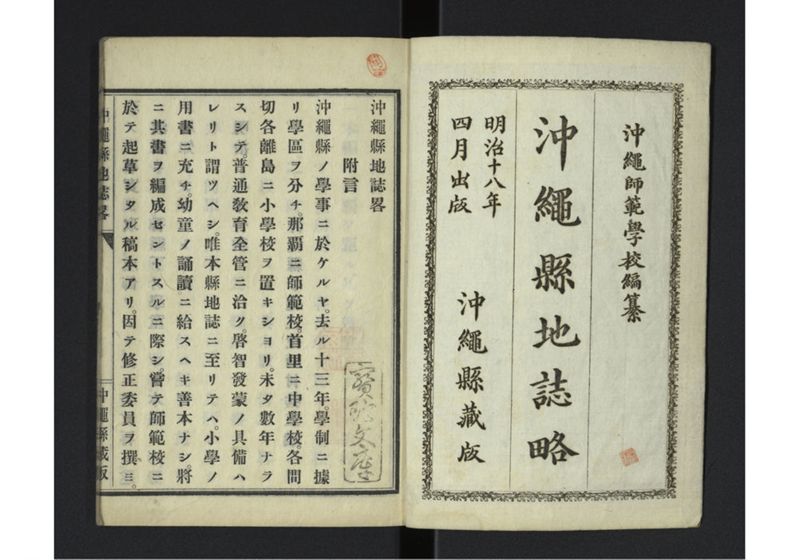 沖繩師範學校編纂
沖繩縣地誌略
明治十八年
四月出版
沖繩縣藏版
沖繩縣地誌畧
附言
沖繩縣ノ學事ニ於ケルヤ。去ル十三年。學制ニ據
リ學區ヲ分チ。那覇ニ師範校。首里ニ中學校。各間
切各離島ニ小學校ヲ置キショリ。未タ數年ナラ
スシテ。普通敎育全管ニ洽ク。啓智發蒙ノ具備ハ
レリト謂ツヘシ。唯本縣地誌ニ至リテハ。小學ノ
用書ニ充チ。幼童ノ誦讀ニ給スヘキ善本ナシ。將
ニ其書ヲ編成セントスルニ際シ。嘗テ師範校ニ
於テ起草シタル稿本アリ。因テ修正委員ヲ撰ミ。
沖繩縣地誌畧
沖繩縣藏版